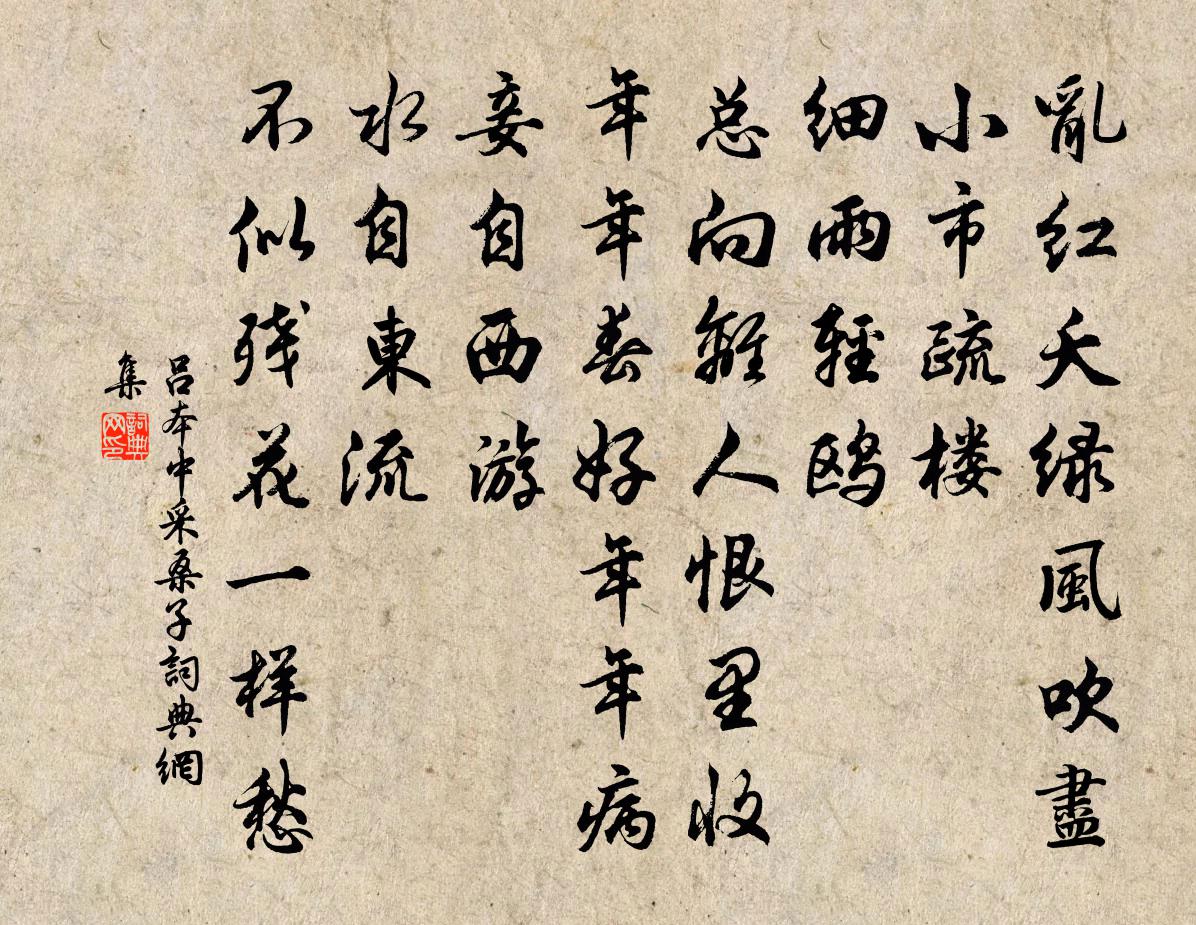 亂红夭绿風吹盡
小市疏楼
细雨輕鸥
总向離人恨里收
年年春好年年病
妾自西游
水自東流
不似残花一样愁
吕本中采桑子詞典網
集
詞典
网印